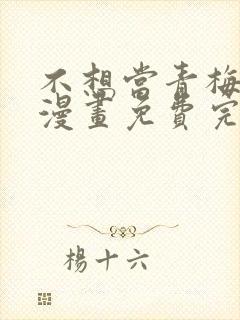 不想當青梅
漫畫免費完
楊十六